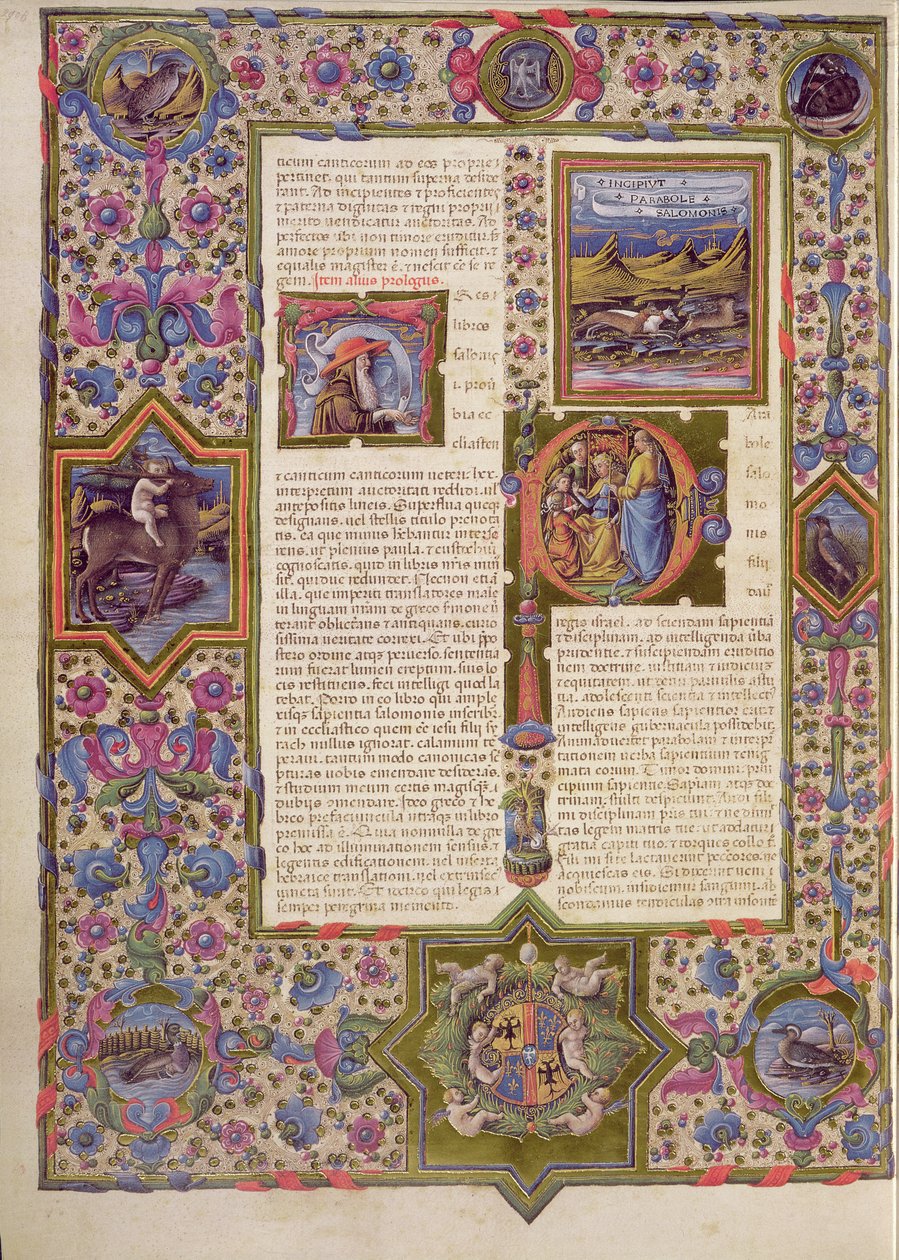 ticum canticorum ad eos proprie
pertinet. qui tantum superna deside
rant. Ad incipientes & proficientes
& paterna dignitas & regni proprii
merito vendicatur auctoritas. Ad
perfectos ubi non timore eruditur. s
amore proprium nomen sufficit. &
equalis magister ē. & nescit cē se re
gem. Item alius prologus.
Res
libros
salomōis
i. prou
bia ec
cliasten
& canticum canticorum ueteri. lxx.
interpretum auctoritati reddidi. ul
antepositis lineis. Superflua queq;
designans. uel stellis titulo prenota
tis. ea que minus habebantur interse
rens. ut plenius paula. & eustochiū
cognoscatis. quid in libris nr̄is minꝰ
sit. quidue redundet. Necnon etiā
illa. que imperiti translatores male
in linguam nr̄am de greco sermone ū
terant oblictans & antiquans. curio
sissima ueritate correxi. Et ubi ppo
stero ordine atq; peruerso. sententia
rum fuerat lumen ereptum. suis lo
cis restituens. feci intelligi quod la
tebat. Porro in eo libro qui a ple
risq; sapientia salomonis inscribit
& in ecclesiastico quem cē iesu filii sy
rach nullus ignorat. calamum te
peraui. tantum modo canonicas sc̄
pturas uobis emendare desiderās.
& studium meum certis magisq; i
dubiis cōmendare. Ideo greco & he
breo prefaciuncula utraq; in libro
premissa ē. Quia nonnulla de gre
co hec ad illuminationem sensus. &
legentis edificationem. uel inserta
hebraice translationi. uel extrinsec
iuncta sunt. Et iccirco qui legis
semper peregrini memento.
INCIPIVT
PARABOLE
SALOMONIS
Ara
bole
salo
mo
nis
filii
dauid
regis israel. ad sciendam sapientiā
& disciplinam. ad intelligenda uerba
prudentie. & suscipiendam eruditio
nem doctrine. iustitiam & iudicium
& equitatem. ut detur paruulis astu
tia. adolescenti scientia & intellectꝰ
Audiens sapiens sapientior erit. &
intelligens gubernacula possidebit.
Animaduertet parabolam & interp̄
tationem uerba sapientium & enig
mata eorum. Timor domini prin
cipium sapientie. Sapiam atq; doc
trinam. stulti despiciunt. Audi fili
mi disciplinam pris tui. & ne dimit
tas legem matris tue. ut addatur
gratia capiti tuo. & torques collo t
Fili mi si te lactauerint peccores. ne
acquiescas eis. Si dixerint ueni
nobiscum. insidiemur sanguini. ab
scondamus tendiculas ctra insonte